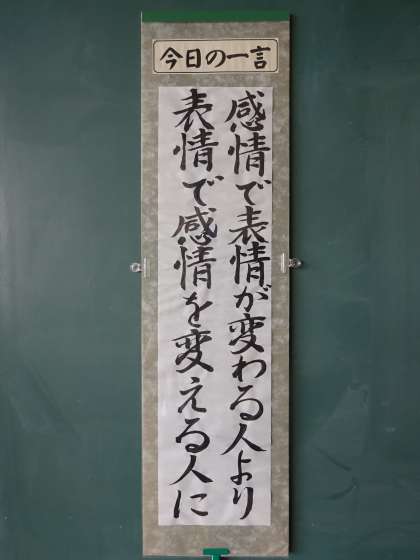 今日の一言
感情で表情が変わる人より
表情で感情を変える人に